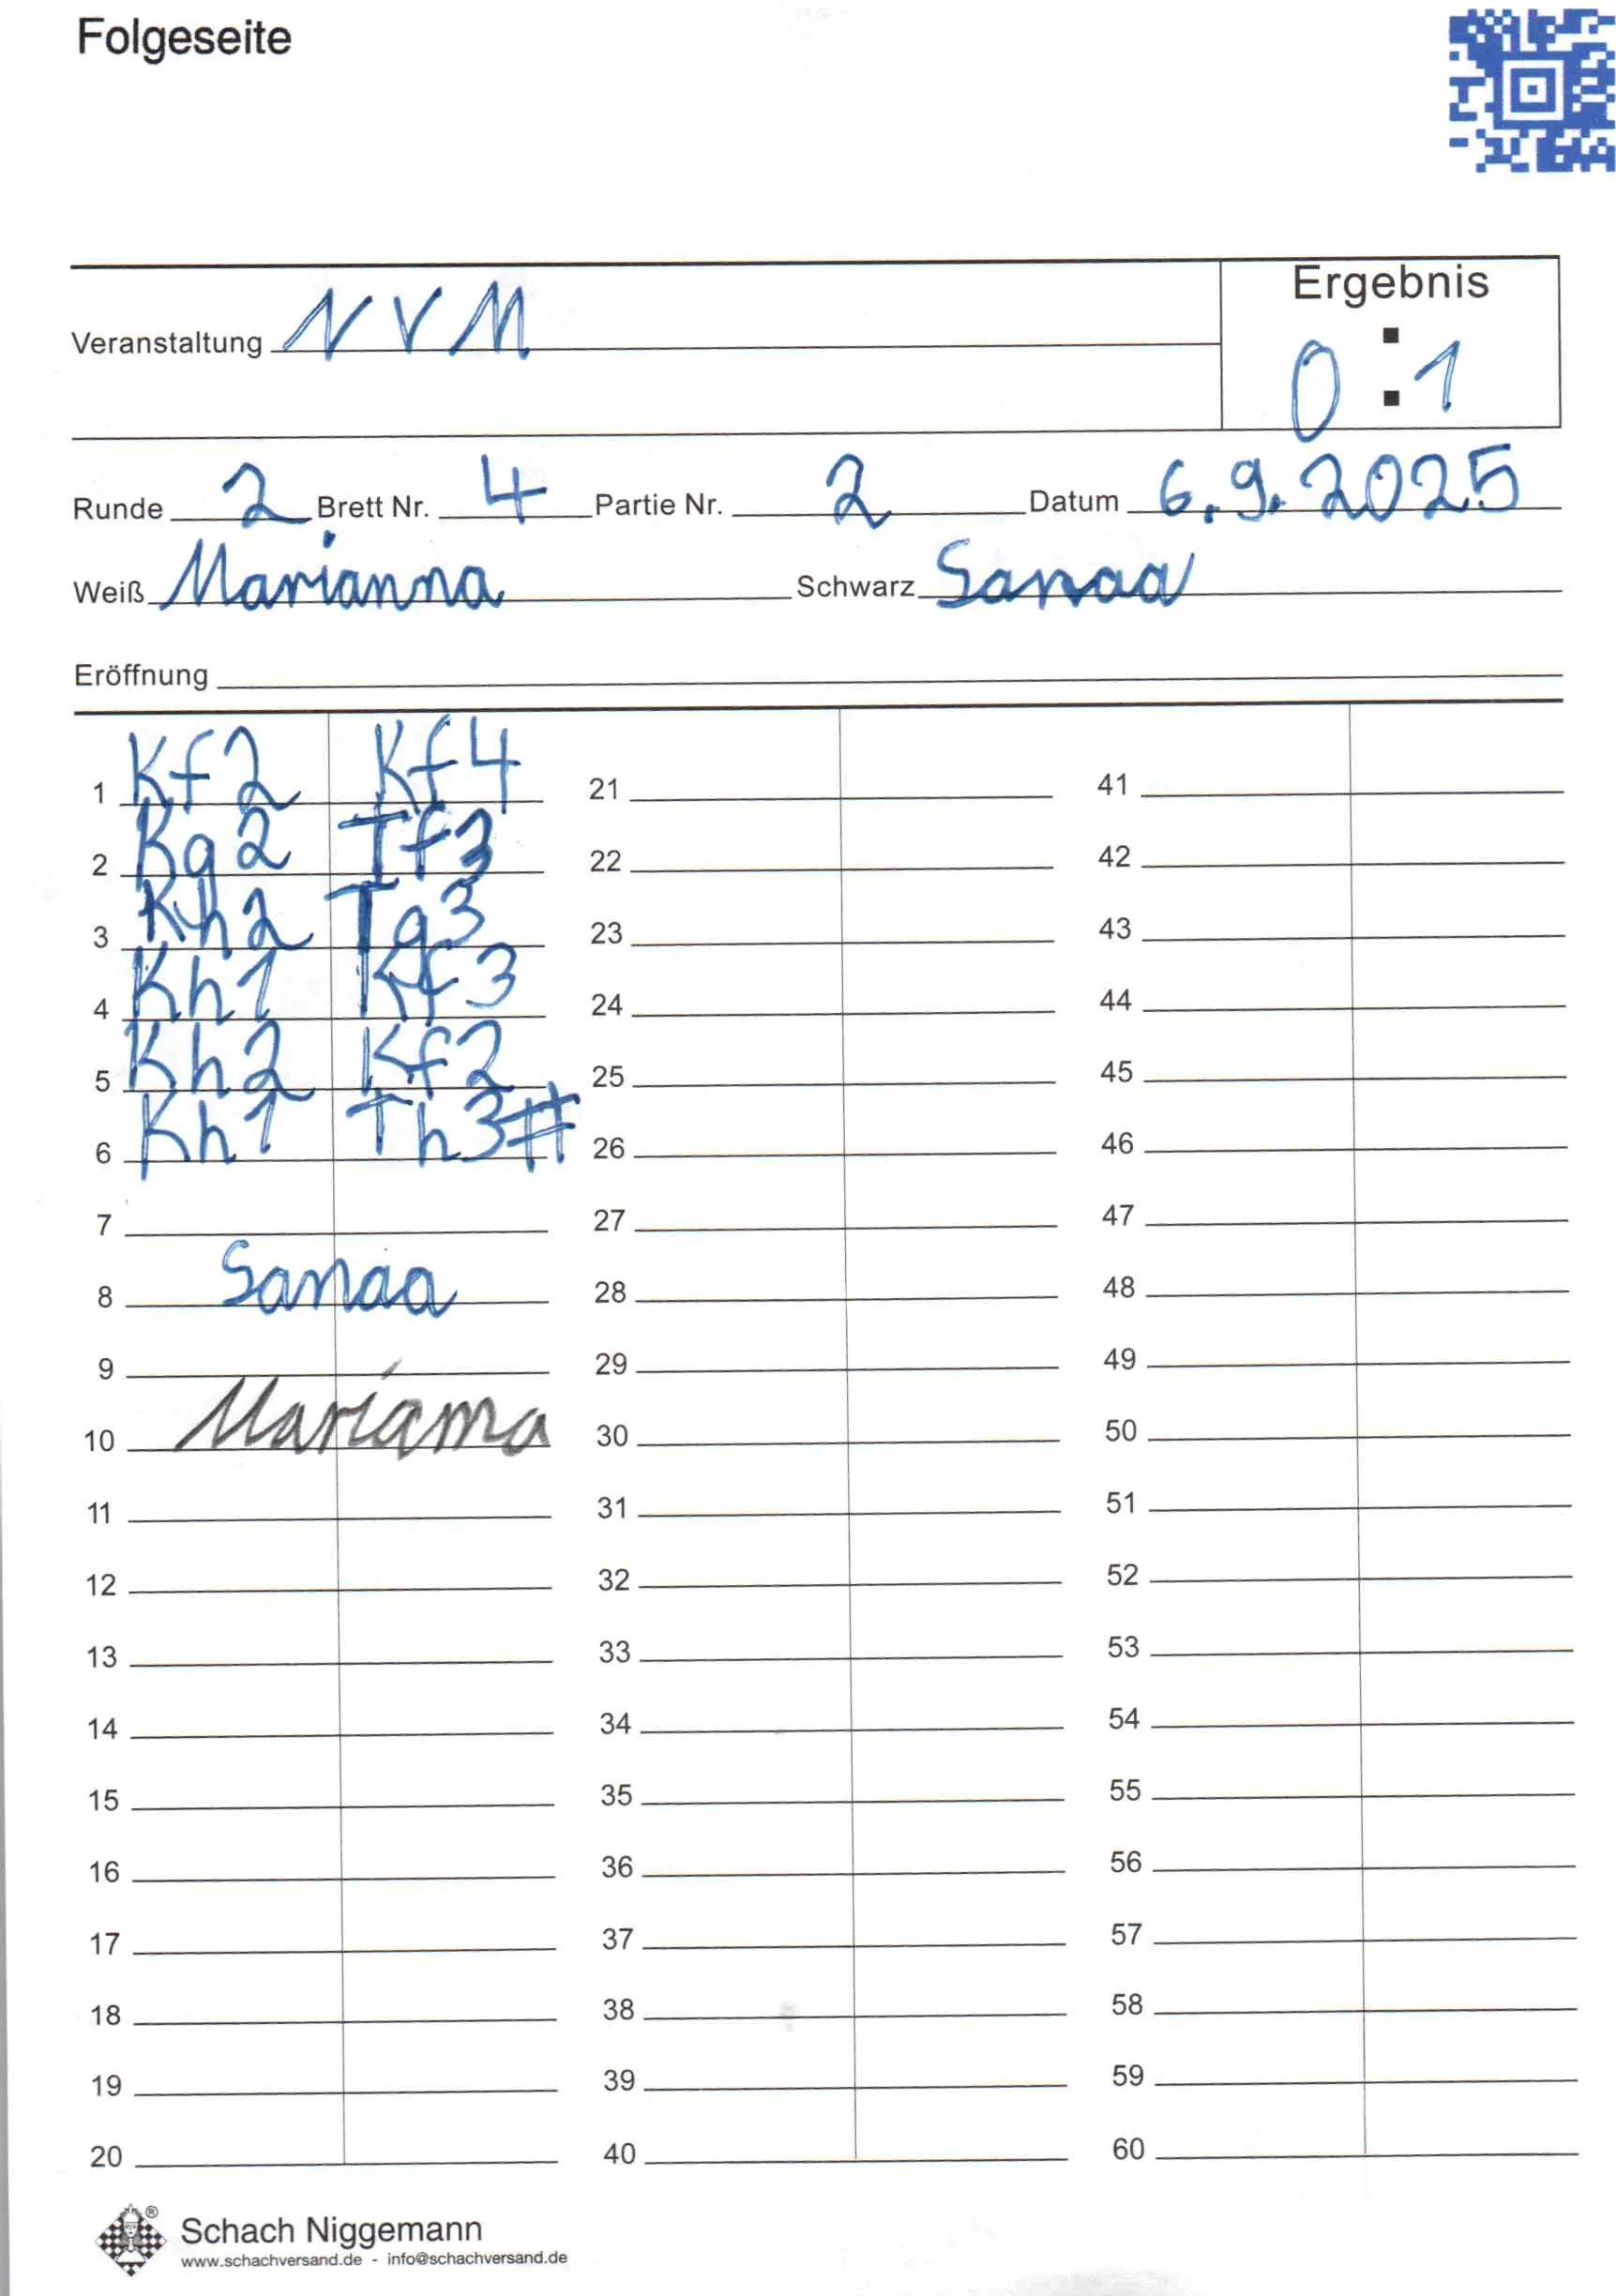 Folgeseite
Veranstaltung NVM
Ergebnis
0 : 1
Runde 2 Brett Nr. 4 Partie Nr. 2 Datum 6.9.2025
Weiß Marianna Schwarz Sanaa
Eröffnung
1 Kf2 Kf4 21 41
2 Kg2 Tf3 22 42
3 Kh2 Tg3 23 43
4 Kh1 Kf3 24 44
5 Kh2 Kf2 25 45
6 Kh1 Th3# 26 46
7 27 47
8 Sanaa 28 48
9 29 49
10 Marianna 30 50
11 31 51
12 32 52
13 33 53
14 34 54
15 35 55
16 36 56
17 37 57
18 38 58
19 39 59
20 40 60
®
Schach Niggemann
www.schachversand.de - info@schachversand.de